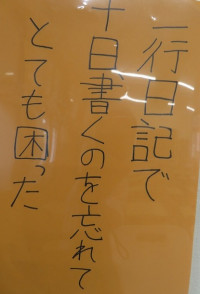 一行日記で
十日書くのを忘れて
とても困った